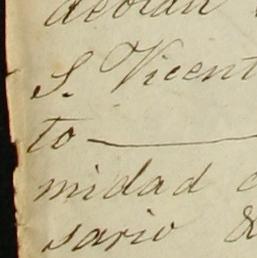 S. Vicent
to
midad
sario &